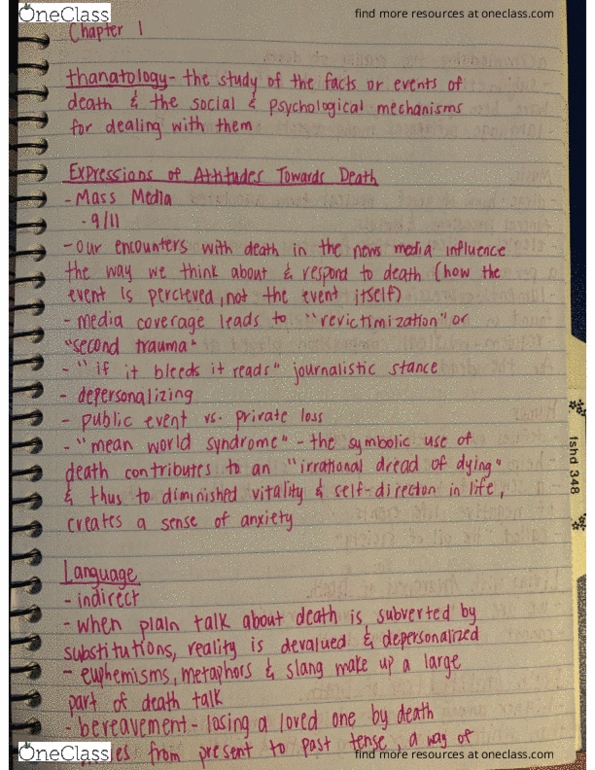 OneClass
find more resources at oneclass.com
Chapter 1
thanatology - the study of the facts or events of
death & the social & psychological mechanisms
for dealing with them
Expressions of Attitudes Towards Death
- Mass Media
- 9/11
- our encounters with death in the news media influence
the way we think about & respond to death (how the
event is percieved, not the event itself)
- media coverage leads to "revictimization" or
"second trauma"
- "if it bleeds it reads" journalistic stance
- depersonalizing
- public event vs. private loss
- "mean world syndrome" - the symbolic use of
death contributes to an "irrational dread of dying"
& thus to diminished vitality & self-directon in life,
creates a sense of anxiety
fshd 348
Language
- indirect
- when plain talk about death is subverted by
substitutions, reality is devalued & depersonalized
- euphemisms, metaphors & slang make up a large
part of death talk
- bereavement - losing a loved one by death
from present to past tense, a way of
OneClass
find more resources at oneclass.com